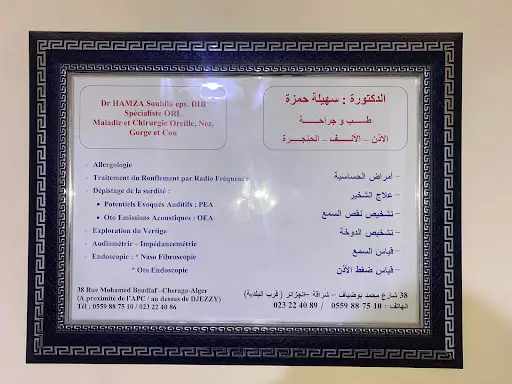 Dr HAMZA Souhila eps. DIB
Spécialiste ORL
Maladie et Chirurgie Oreille, Nez,
Gorge et Cou
الدكتورة : سهيلة حمزة
طـــب و جراحـــة
الأذن – الأنـــف – الحنجـــرة
- Allergologie
- Traitement du Ronflement par Radio Fréquence
- Dépistage de la surdité :
• Potentiels Evoqués Auditifs : PEA
• Oto Emissions Acoustiques : OEA
- Exploration du Vertige
- Audiométrie – Impédancemétrie
- Endoscopie : * Naso Fibroscopie
* Oto Endoscopie
– أمراض الحساسية
– علاج الشخير
– تشخيص نقص السمع
– تشخيص الدوخة
– قياس السمع
– قياس ضغط الأذن
38 Rue Mohamed Boudiaf–Cheraga-Alger
(A proximité de l'APC / au dessus de DJEZZY)
Tél : 0559 88 75 10 / 023 22 40 86
38 شارع محمد بوضياف – شراقة –الجزائر ( قرب البلدية)
الهاتف : 10 75 88 0559 / 89 40 22 023